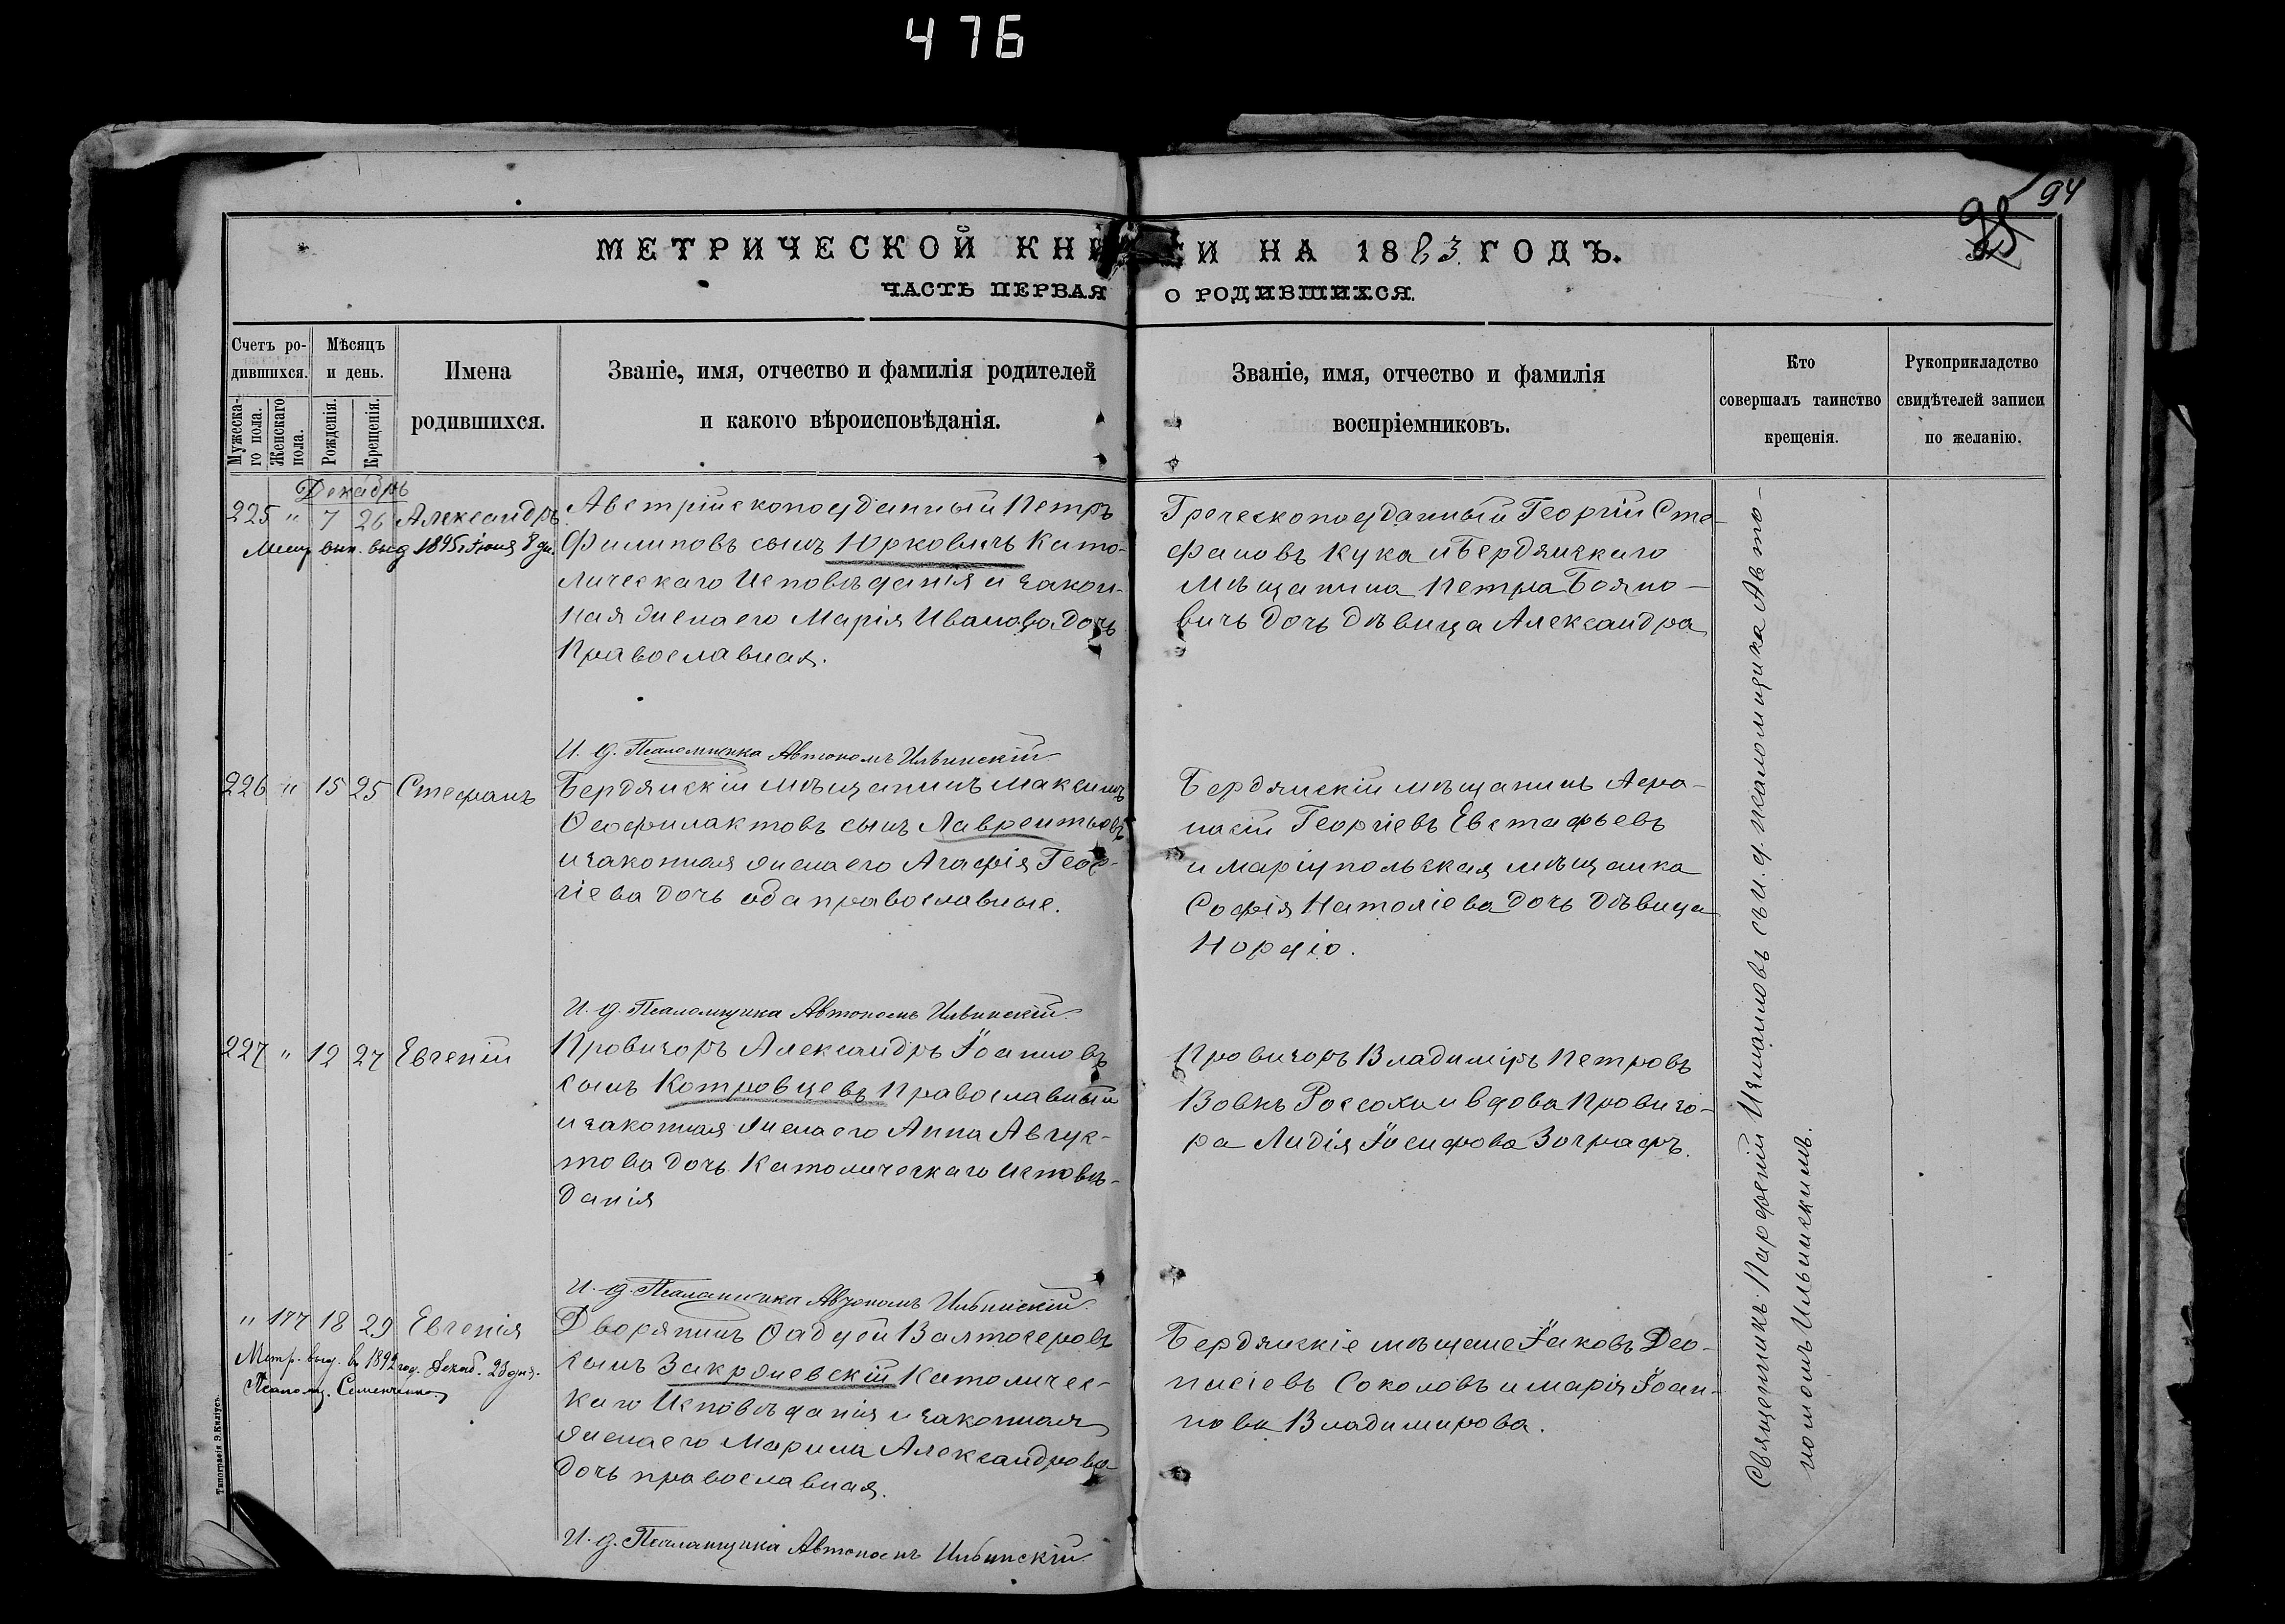 476
94
МЕТРИЧЕСКОЙ КНИГИ НА 1883 ГОДЪ.
ЧАСТЬ ПЕРВАЯ О РОДИВШИХСЯ.
Счетъ ро-
дившихся.
Мужеска-
го пола.
Женскаго
пола.
Мѣсяцъ
и день.
Рожденія.
Крещенія.
Имена
родившихся.
Званіе, имя, отчество и фамилія родителей
и какого вѣроисповѣданія.
Званіе, имя, отчество и фамилія
воспріемниковъ.
Кто
совершалъ таинство
крещенія.
Рукоприкладство
свидѣтелей записи
по желанію.
Декабрь
225 " 7 26 Александръ
выд 1895 г. Іюня 8 дн.
Австрійскоподданный Петръ
Филиповъ сынъ Юрковичъ Като-
лическаго Исповѣданія и закон-
ная жена его Марія Иванова дочь
Православная.
Греческоподданный Георгій Сте-
фановъ Кука и Бердянскаго
Мѣщанина Петра Бояно-
вичъ дочь дѣвица Александра
И. д. Псаломщика Автономъ Ильинскій
226 " 15 25 Стефанъ
Бердянскій мѣщанинъ Максимъ
Феофилактовъ сынъ Лаврентьевъ
и законная жена его Агафія Геор-
гіева дочь оба православные.
Бердянскій мѣщанинъ Афа-
насій Георгіевъ Евстафьевъ
и Маріупольская мѣщанка
Софія Натоліева дочь дѣвица
И. д. Псаломщика Автономъ Ильинскій
227 " 12 27 Евгеній
Провизоръ Александръ Іоанновъ
сынъ Котровцевъ Православный
и законная жена его Анна Авгус-
това дочь Католическаго Исповѣ-
данія
Провизоръ Владиміръ Петровъ
Вовкъ Россохи и вдова Провизо-
ра Лидія Іосифова Зографъ.
И. д. Псаломщика Автономъ Ильинскій
" 177 18 29 Евгенія
Метр. выд. въ 1892 год. Декаб. 23 дня.
Псаломщ. Семенченко
Дворянинъ Фадѣй Валтосеровъ
сынъ Закржевскій Католичес-
каго Исповѣданія и законная
жена его Марина Александрова
дочь православная.
Бердянскіе мѣщане Іаковъ Део-
нисіевъ Соколовъ и Марія Іоан-
нова Владимирова.
И. д. Псаломщика Автономъ Ильинскій
Священникъ Парфеній Измаиловъ съ и. д. псаломщика Авто-
номомъ Ильинскимъ.
Типографія Э. Киліусъ.